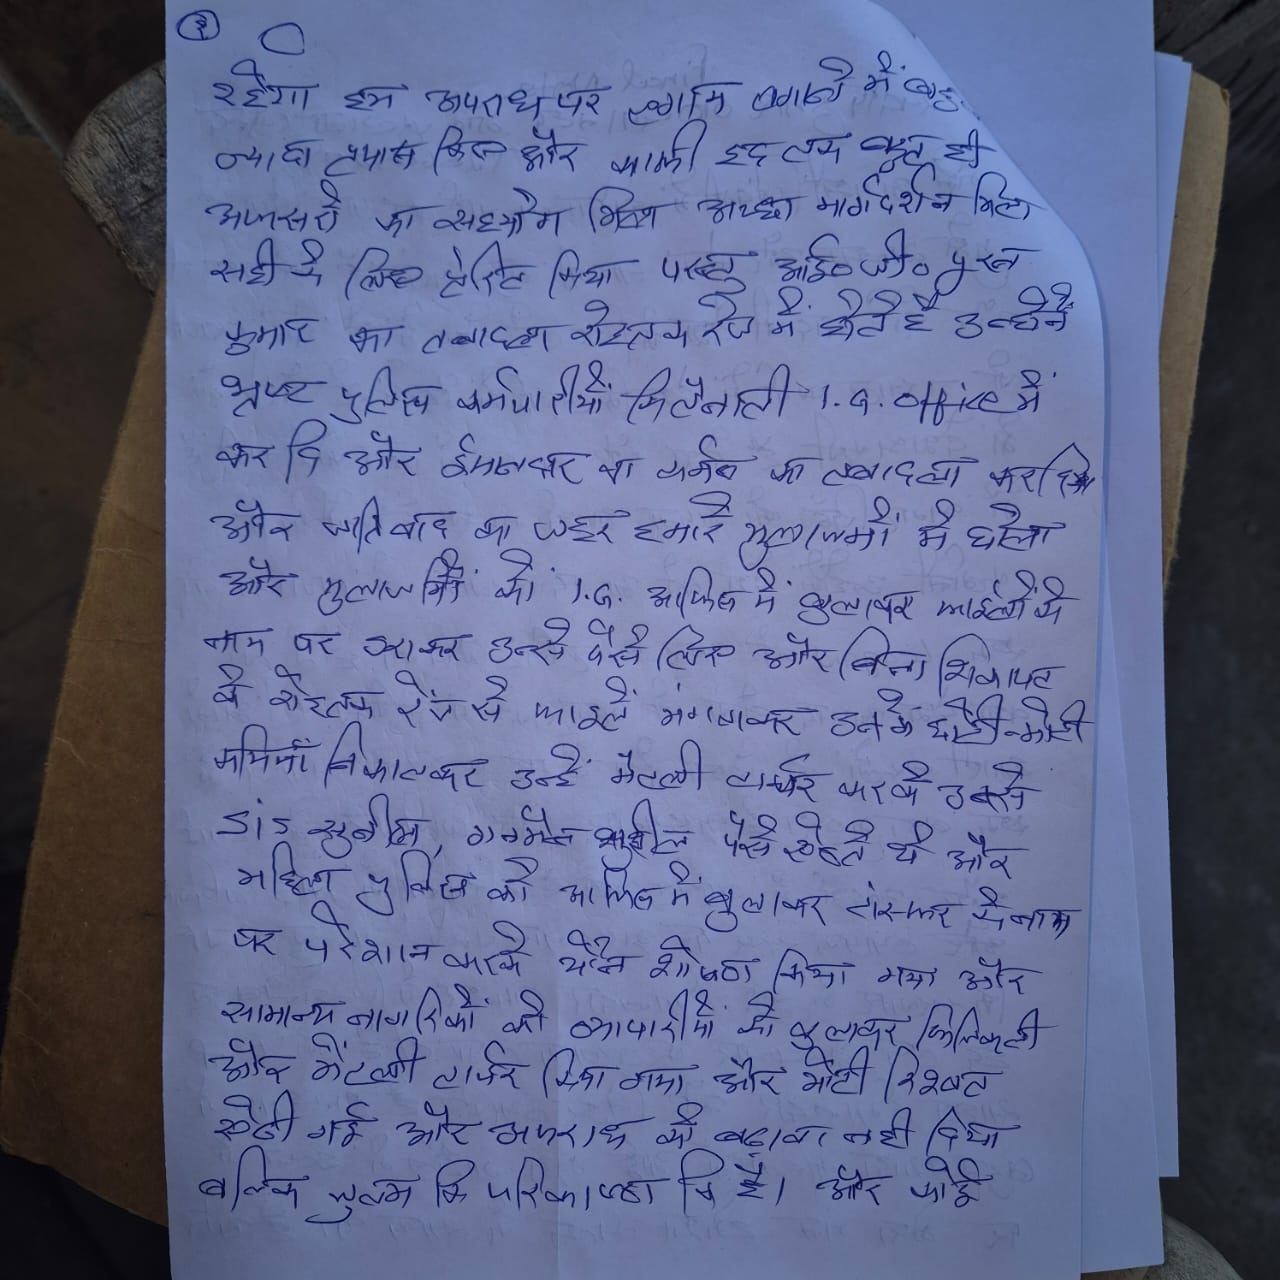 ३
रहेगा हम अपराध पर लगाम लगाने में बहु
ज्यादा प्रयास किए और काफी हद तक बहुत ही
अफसरों का सहयोग मिला अच्छा मार्गदर्शन मिला
सही के लिए प्रेरित किया परन्तु आई० जी० पुरन
कुमार का तबादला रोहतक रेंज में होते है उन्होंने
भ्रष्ट पुलिस कर्मचारीयों कि तैनाती I.G. office में
कर दि और ईमानदार का तबादला कर दिया
और जातिवाद का जहर हमारे मुलाजमों में घोला
और मुलाजमों को I.G. आफिस में बुलाकर फाईलों के
नाम पर डराकर उन्से पैसे लिए और बिना शिकायत
के रोहतक रेंज से फाइलें मंगवाकर उनमें छोटी मोटी
कमियां निकालकर उन्हें मेंटली टार्चर करके उनसे
SIS सुनील, गनमैन सुशील पैसे ऐंठते थे और
महिला पुलिस को आफिस में बुलाकर टांस्फर के नाम
पर परेशान करके यौन शोषण किया गया और
सामान्य नागरिकों को व्यापारीयों को बुलाकर फिजिकली
और मेंटली टार्चर किया गया और मोटी रिश्वत
ऐंठी गई और अपराध को बढावा नही दिया
बल्कि जुल्म कि परिकाष्ठा कि है। और कोई